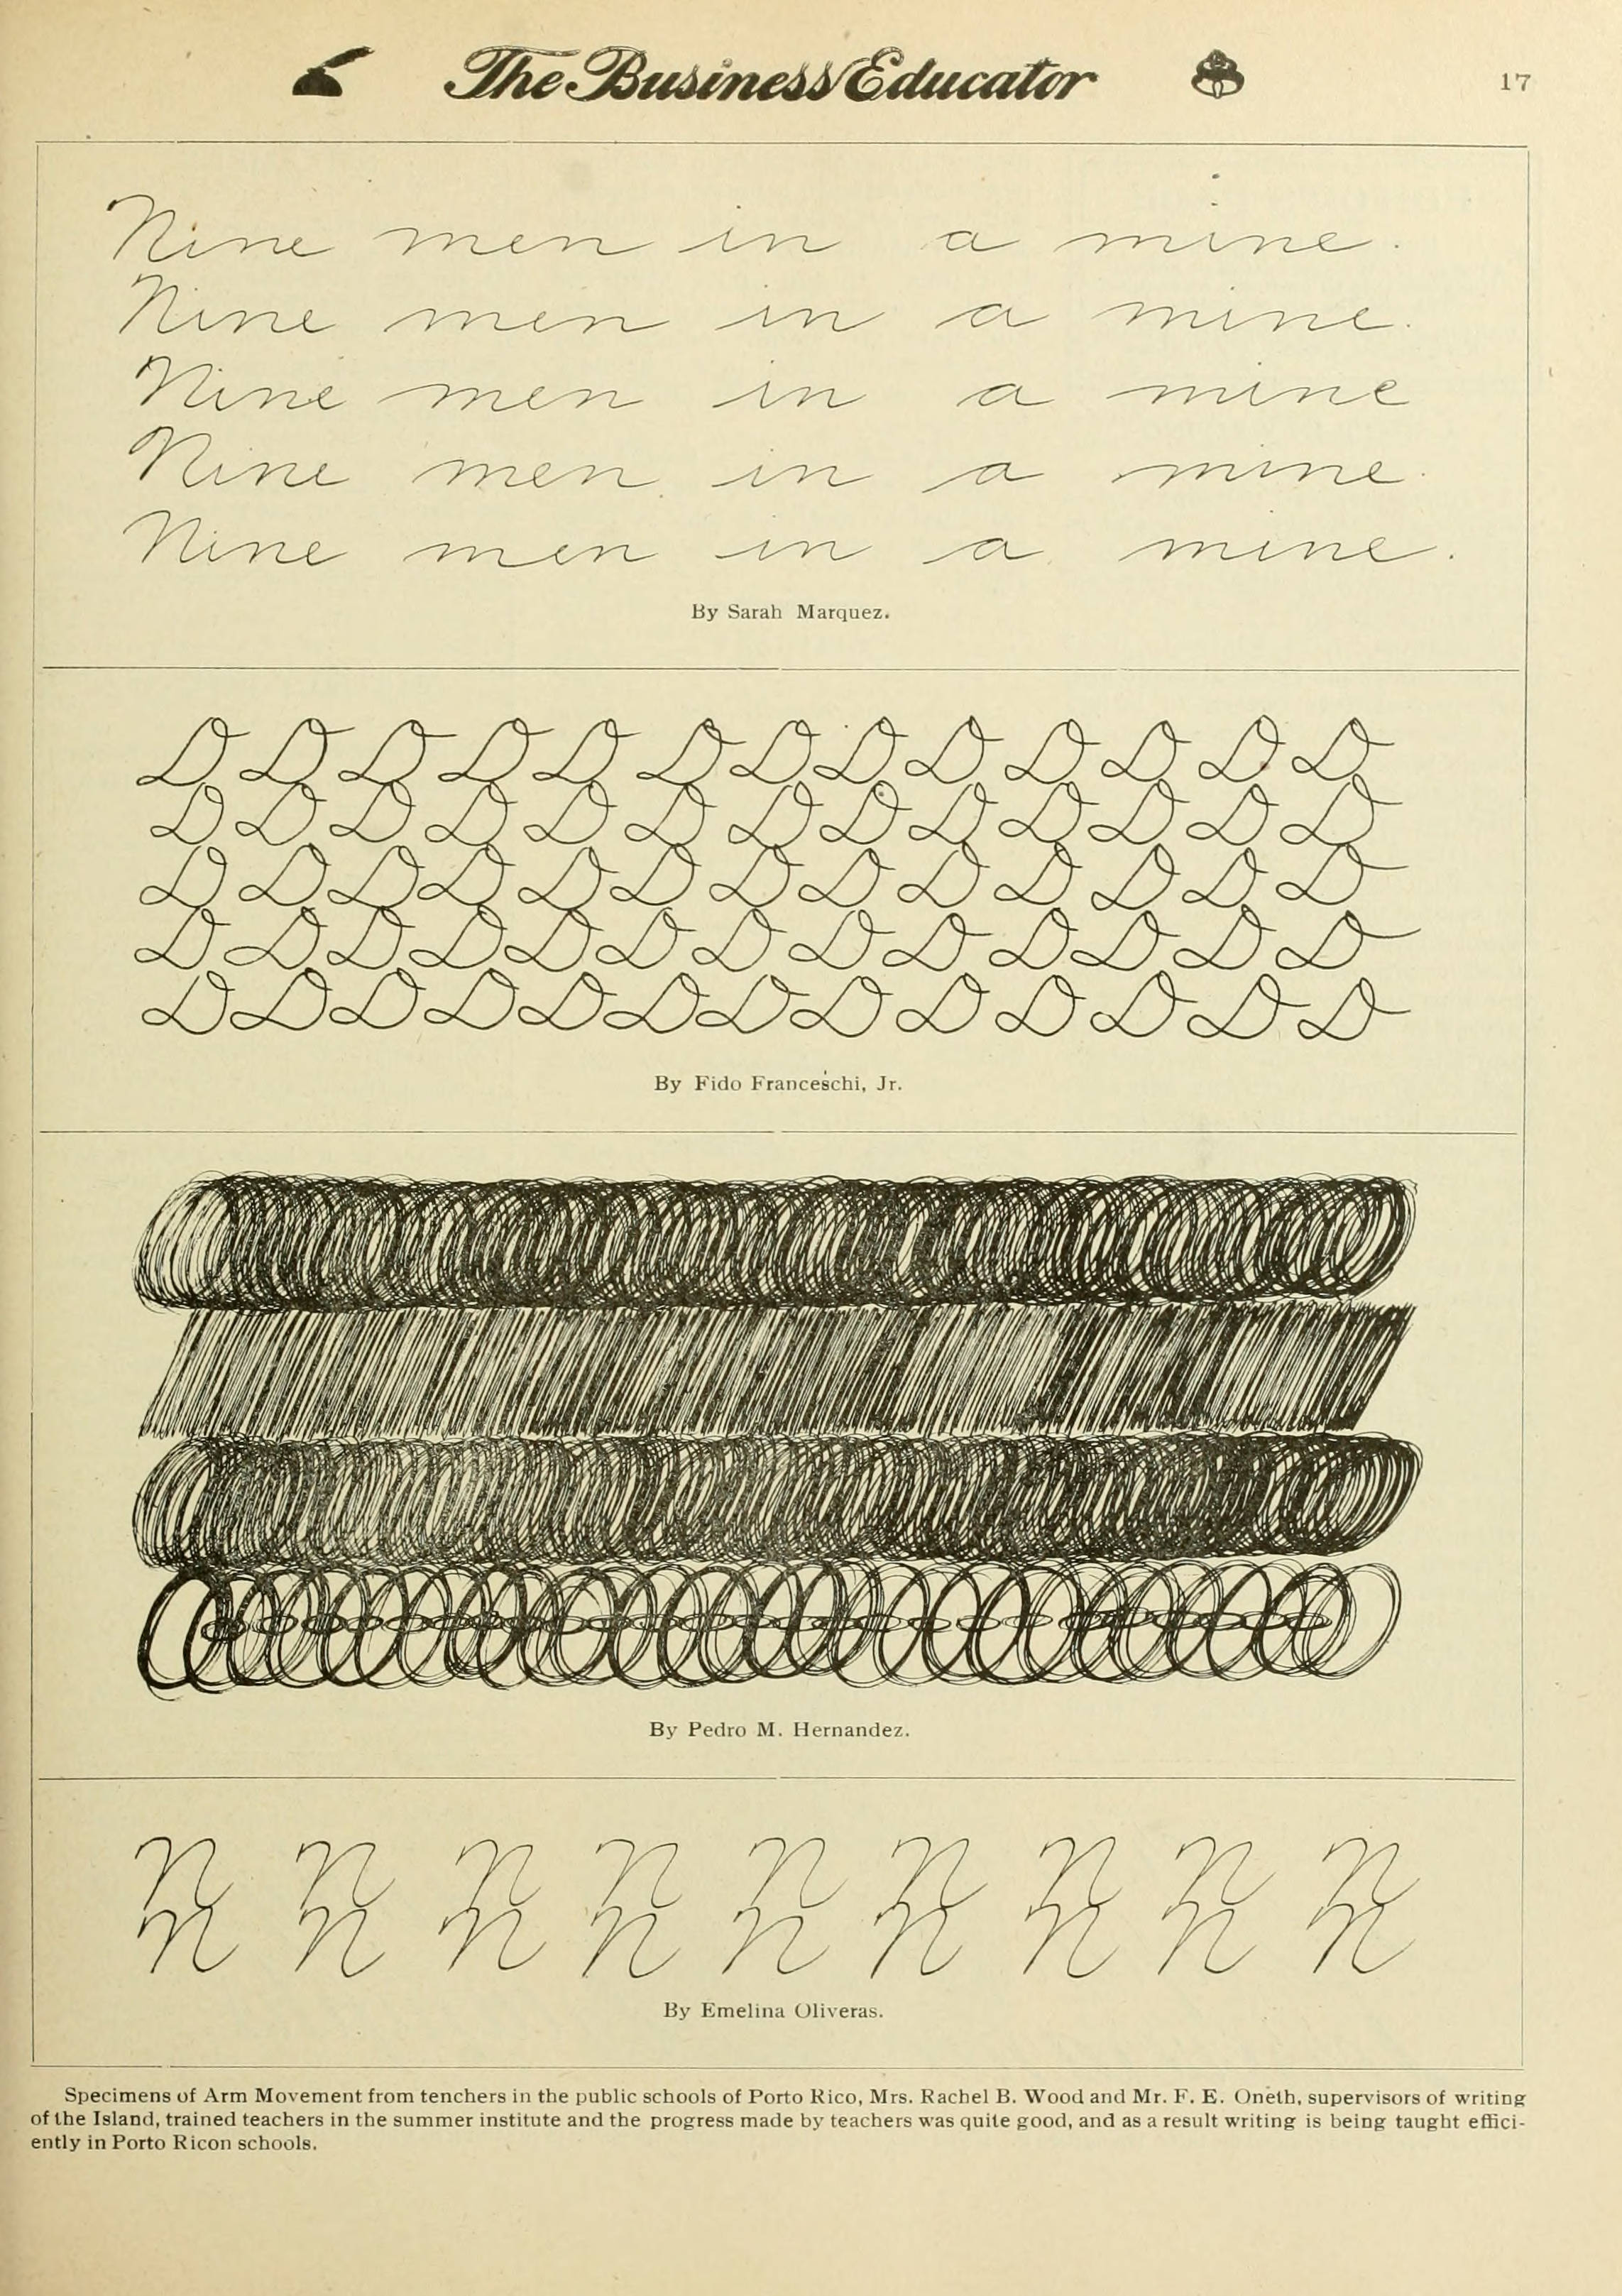 The Business Educator 17
Nine men in a mine.
Nine men in a mine.
Nine men in a mine
Nine men in a mine.
Nine men in a mine.
By Sarah Marquez.
D D D D D D D D D D D D D
D D D D D D D D D D D D D
D D D D D D D D D D D D D
D D D D D D D D D D D D D
D D D D D D D D D D D D D
By Fido Franceschi, Jr.
By Pedro M. Hernandez.
N N N N N N N N N
N N N N N N N N N
By Emelina Oliveras.
Specimens of Arm Movement from tenchers in the public schools of Porto Rico, Mrs. Rachel B. Wood and Mr. F. E. Oneth, supervisors of writing
of the Island, trained teachers in the summer institute and the progress made by teachers was quite good, and as a result writing is being taught effici-
ently in Porto Ricon schools.